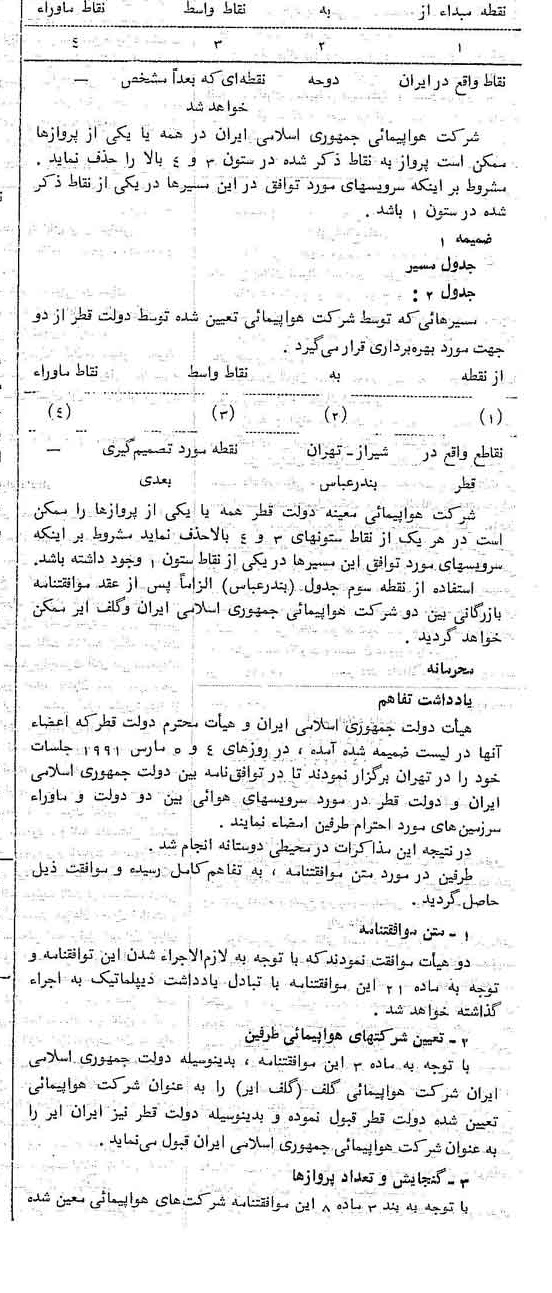 نقطه مبداء از به نقاط واسط نقاط ماوراء
۱ ۲ ۳ ٤
نقاط واقع در ایران دوحه نقطه‌ای که بعداً مشخص —
خواهد شد
شرکت هواپیمائی جمهوری اسلامی ایران در همه یا یکی از پروازها
ممکن است پرواز به نقاط ذکر شده در ستون ۳ و ٤ بالا را حذف نماید .
مشروط بر اینکه سرویسهای مورد توافق در این مسیرها در یکی از نقاط ذکر
شده در ستون ۱ باشد .
ضمیمه ۱
جدول مسیر
جدول ۲ :
مسیرهائی که توسط شرکت هواپیمائی تعیین شده توسط دولت قطر از دو
جهت مورد بهره‌برداری قرار می‌گیرد .
از نقطه به نقاط واسط نقاط ماوراء
(۱) (۲) (۳) (٤)
نقاطع واقع در شیراز - تهران نقطه مورد تصمیم‌گیری —
قطر بندرعباس بعدی
شرکت هواپیمائی معینه دولت قطر همه یا یکی از پروازها را ممکن
است در هر یک از نقاط ستونهای ۳ و ٤ بالاحذف نماید مشروط بر اینکه
سرویسهای مورد توافق این مسیرها در یکی از نقاط ستون ۱ وجود داشته باشد.
استفاده از نقطه سوم جدول (بندرعباس) الزاماً پس از عقد موافقتنامه
بازرگانی بین دو شرکت هواپیمائی جمهوری اسلامی ایران وگلف ایر ممکن
خواهد گردید .
محرمانه
یادداشت تفاهم
هیأت دولت جمهوری اسلامی ایران و هیأت محترم دولت قطر که اعضاء
آنها در لیست ضمیمه شده آمده ، در روزهای ٤ و ۵ مارس ۱۹۹۱ جلسات
خود را در تهران برگزار نمودند تا در توافق‌نامه بین دولت جمهوری اسلامی
ایران و دولت قطر در مورد سرویسهای هوائی بین دو دولت و ماوراء
سرزمین‌های مورد احترام طرفین امضاء نمایند .
در نتیجه این مذاکرات در محیطی دوستانه انجام شد .
طرفین در مورد متن موافقتنامه ، به تفاهم کامل رسیده و موافقت ذیل
حاصل گردید .
۱ - متن موافقتنامه
دو هیأت موافقت نمودند که با توجه به لازم‌الاجراء شدن این توافقنامه و
توجه به ماده ۲۱ این موافقتنامه با تبادل یادداشت دیپلماتیک به اجراء
گذاشته خواهد شد .
۲ - تعیین شرکتهای هواپیمائی طرفین
با توجه به ماده ۳ این موافقتنامه ، بدینوسیله دولت جمهوری اسلامی
ایران شرکت هواپیمائی گلف (گلف ایر) را به عنوان شرکت هواپیمائی
تعیین شده دولت قطر قبول نموده و بدینوسیله دولت قطر نیز ایران ایر را
به عنوان شرکت هواپیمائی جمهوری اسلامی ایران قبول می‌نماید .
۳ - گنجایش و تعداد پروازها
با توجه به بند ۳ ماده ۸ این موافقتنامه شرکت‌های هواپیمائی معین شده